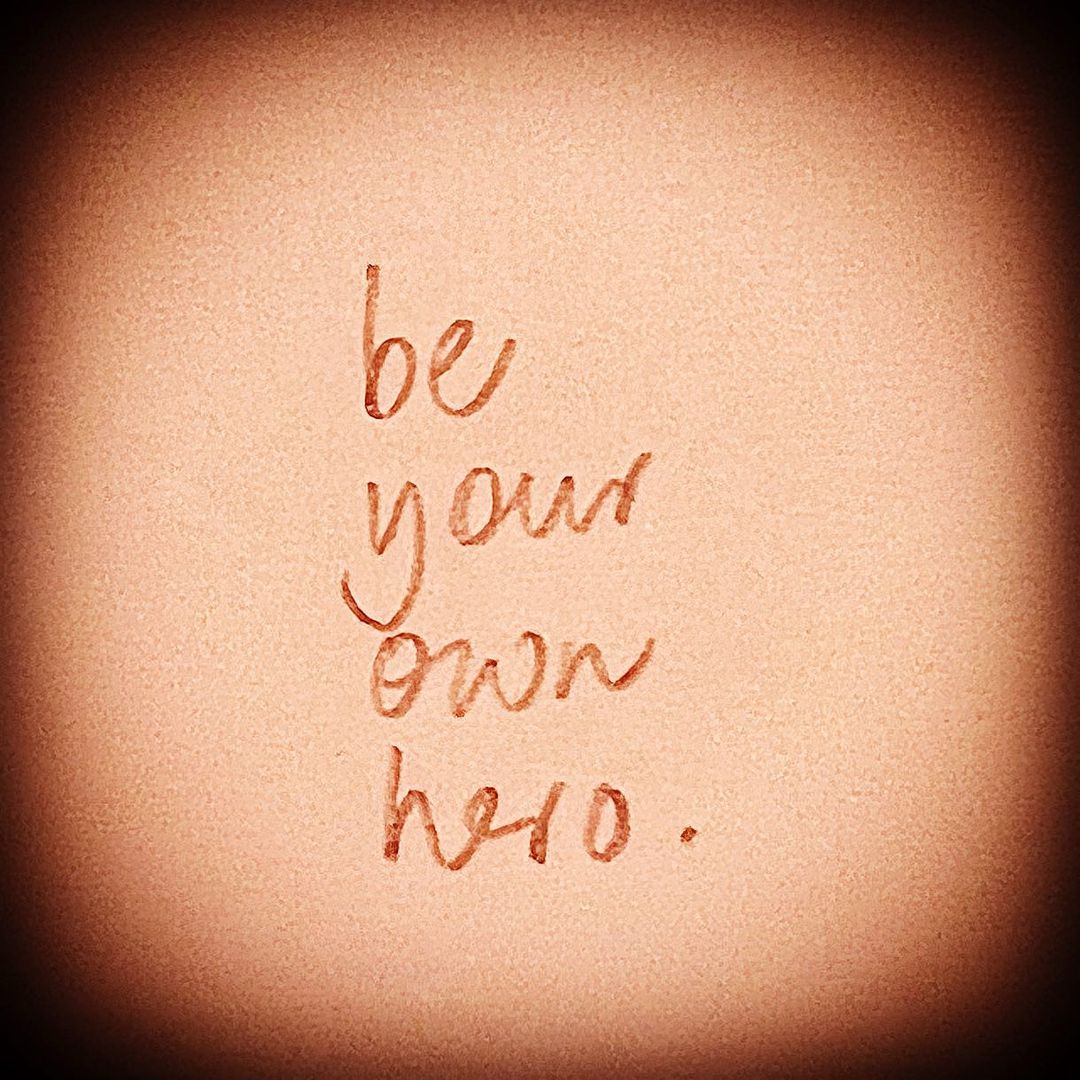 be
your
own
hero.